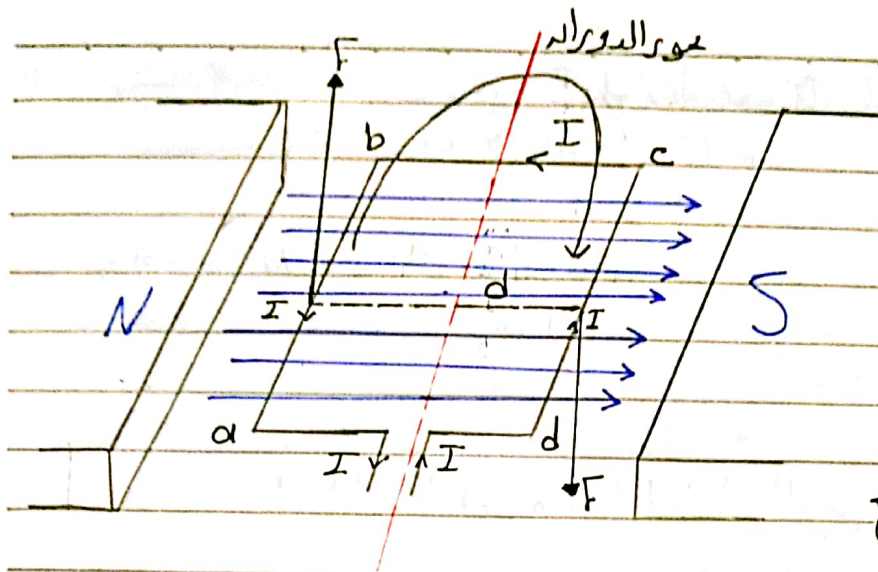 محور الدوران
F
I
b
c
d
I
I
N
S
a
d
I
I
F